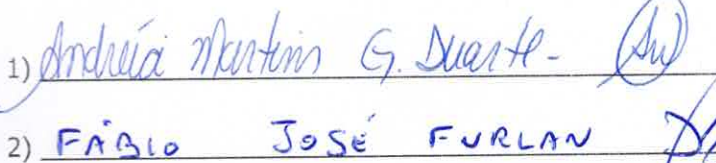 1) Andréia Martins G. Duarte -
2) FÁBIO JOSÉ FURLAN